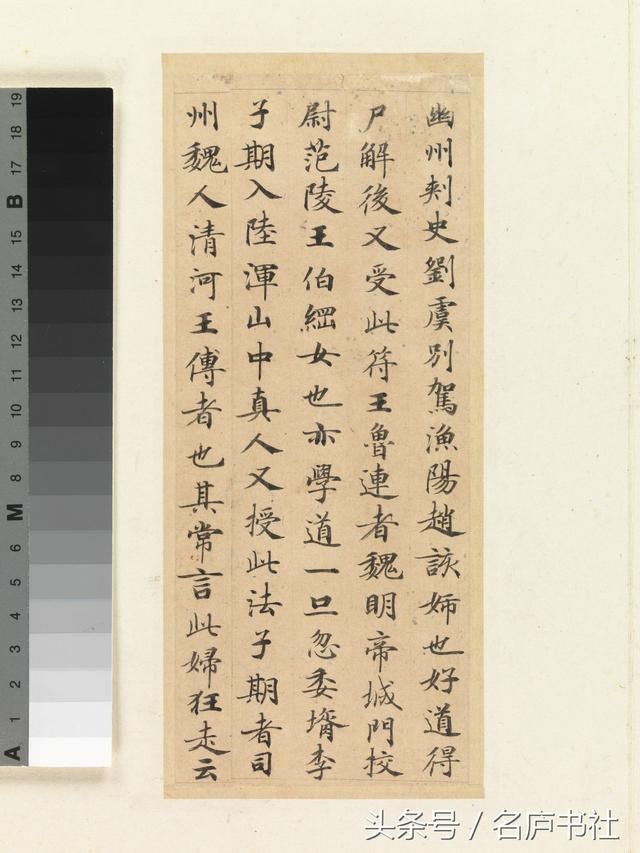 幽州刾史劉虞別駕漁陽趙該姉也好道得
尸解後又受此符王魯連者魏明帝城門挍
尉范陵王伯綱女也亦學道一旦忽委壻李
子期入陸渾山中真人又授此法子期者司
州魏人清河王傅者也其常言此婦狂走云
A 1 2 3 4 5 6 M 8 9 10 11 12 13 14 15 B 17 18 19
头条号 / 名庐书社